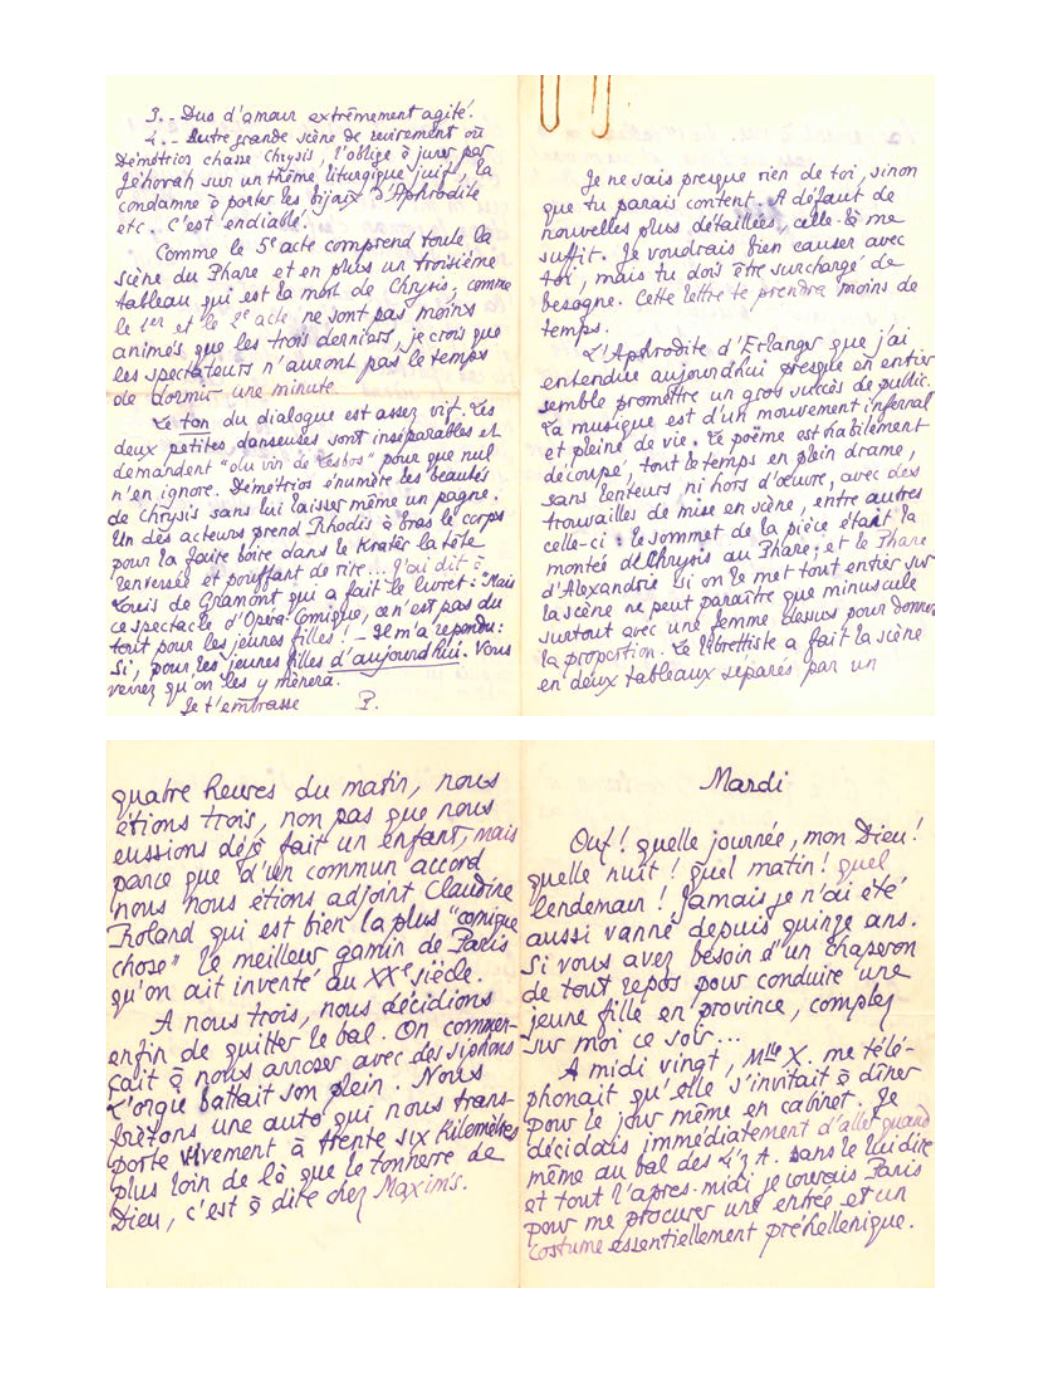 3.- Duo d'amour extrêmement agité.
4.- Autre grande scène de revirement où
Démétrios chasse Chrysis, l'oblige à jurer par
Jéhovah sur un thême liturgique juif, la
condamne à porter les bijoux d'Aphrodite
etc. C'est endiablé.
Comme le 5e acte comprend toute la
scène du Phare et en plus un troisième
tableau qui est la mort de Chrysis, comme
le 1er et le 2e acte, ne sont pas moins
animés que les trois derniers, je crois que
les spectateurs n'auront pas le temps
de dormir une minute.
Le ton du dialogue est assez vif. Les
deux petites danseuses sont inséparables et
demandent "du vin de Lesbos" pour que nul
n'en ignore. Démétrios énumère les beautés
de Chrysis sans lui laisser même un pagne.
Un des acteurs prend Rhodis à bras le corps
pour la faire boire dans le Kratêr la tête
renversée et pouffant de rire... J'ai dit à
Louis de Gramont qui a fait le livret : "Mais
ce spectacle d'Opéra-Comique, ce n'est pas du
tout pour les jeunes filles ! - Il m'a répondu :
Si, pour les jeunes filles d'aujourd'hui. Vous
verrez qu'on les y mènera.
Je t'embrasse P.
Je ne sais presque rien de toi, sinon
que tu parais content. A défaut de
nouvelles plus détaillées, celle-là me
suffit. Je voudrais bien causer avec
toi, mais tu dois être surchargé de
besogne. Cette lettre te prendra moins de
temps.
L'Aphrodite d'Erlanger que j'ai
entendue aujourd'hui presque en entier
semble promettre un gros succès de public.
La musique est d'un mouvement infernal
et pleine de vie. Le poëme est habilement
découpé, tout le temps en plein drame,
sans lenteurs ni hors d'œuvre, avec des
trouvailles de mise en scène, entre autres
celle-ci : le sommet de la pièce étant la
montée de Chrysis au Phare; et le Phare
d'Alexandrie si on le met tout entier sur
la scène ne peut paraître que minuscule
surtout avec une femme dessus pour donner
la proportion. Le librettiste a fait la scène
en deux tableaux séparés par un
quatre heures du matin, nous
étions trois, non pas que nous
eussions déjà fait un enfant, mais
parce que d'un commun accord
nous nous étions adjoint Claudine
Roland qui est bien la plus "comique
chose" le meilleur gamin de Paris
qu'on ait inventé au XXe siècle.
A nous trois, nous décidions
enfin de quitter le bal. On commen-
çait à nous arroser avec des siphons
L'orgie battait son plein. Nous
frêtons une auto qui nous trans-
porte vivement à trente six Kilomètres
plus loin de là que le tonnerre de
Dieu, c'est à dire chez Maxim's.
Mardi
Ouf! quelle journée, mon Dieu!
quelle nuit ! quel matin! quel
lendemain ! Jamais je n'ai été
aussi vanné depuis quinze ans.
Si vous avez besoin d'un chaperon
de tout repos pour conduire une
jeune fille en province, comptez
sur moi ce soir...
A midi vingt, Mlle X. me télé-
phonait qu'elle s'invitait à dîner
pour le jour même en cabinet. Je
décidais immédiatement d'aller quand
même au bal des 4'z A. sans le lui dire
et tout l'après-midi je courais Paris
pour me procurer une entrée et un
costume essentiellement préhellenique.